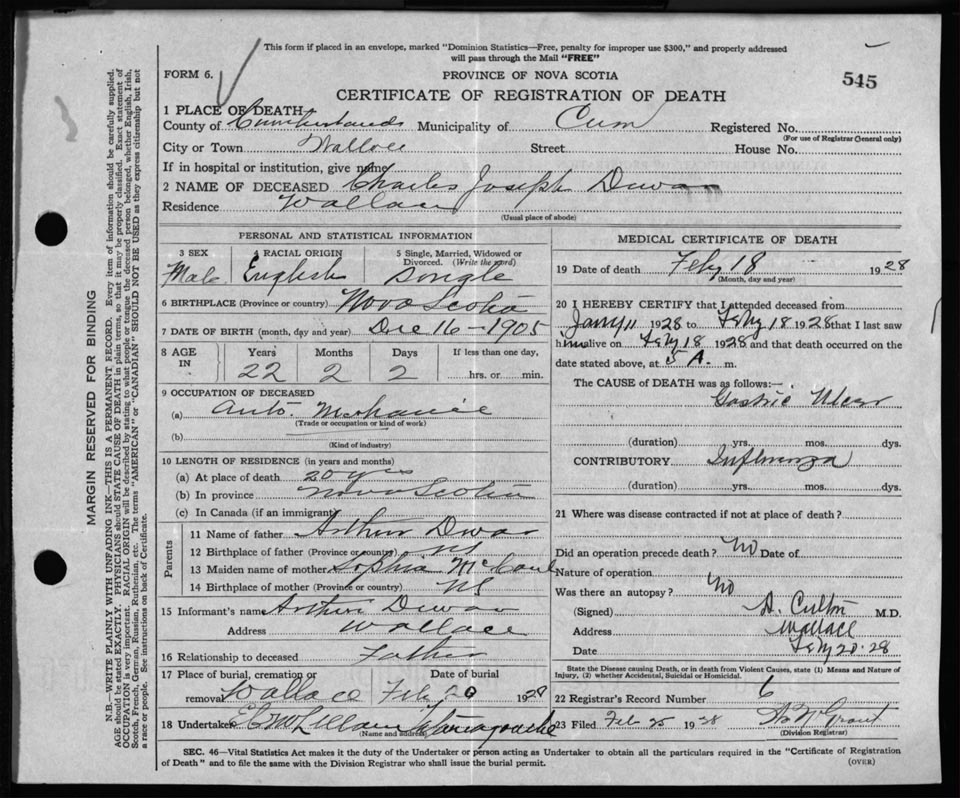 This form if placed in an envelope, marked "Dominion Statistics—Free, penalty for improper use $300," and properly addressed
will pass through the Mail "FREE"
FORM 6.
PROVINCE OF NOVA SCOTIA
545
CERTIFICATE OF REGISTRATION OF DEATH
1 PLACE OF DEATH
County of Cumberland Municipality of Cum Registered No.
(For use of Registrar General only)
City or Town Wallace Street House No.
If in hospital or institution, give name
2 NAME OF DECEASED Charles Joseph Dewar
Residence Wallace
(Usual place of abode)
PERSONAL AND STATISTICAL INFORMATION
3 SEX 4 RACIAL ORIGIN 5 Single, Married, Widowed or
Divorced. (Write the word)
Male English Single
6 BIRTHPLACE (Province or country) Nova Scotia
7 DATE OF BIRTH (month, day and year) Dec 16—1905
8 AGE IN Years Months Days If less than one day,
22 2 2 hrs. or min.
9 OCCUPATION OF DECEASED
(a) Auto. Mechanic
(Trade or occupation or kind of work)
(b)
(Kind of industry)
10 LENGTH OF RESIDENCE (in years and months)
(a) At place of death 20 yrs
(b) In province Nova Scotia
(c) In Canada (if an immigrant)
Parents
11 Name of father Arthur Dewar
12 Birthplace of father (Province or country) NS
13 Maiden name of mother Sophia
14 Birthplace of mother (Province or country) NS
15 Informant's name Arthur Dewar
Address Wallace
16 Relationship to deceased Father
17 Place of burial, cremation or removal Date of burial
Wallace Feby 20 1928
18 Undertaker Tatamagouche
(Name and address)
MEDICAL CERTIFICATE OF DEATH
19 Date of death Feby 18 1928
(Month, day and year)
20 I HEREBY CERTIFY that I attended deceased from
Jany 11 1928 to Feby 18 1928 that I last saw
him alive on Feby 18 1928 and that death occurred on the
date stated above, at 5 A. m.
The CAUSE of DEATH was as follows:—
Gastric Ulcer
(duration) yrs. mos. dys.
CONTRIBUTORY Influenza
(duration) yrs. mos. dys.
21 Where was disease contracted if not at place of death?
Did an operation precede death? No Date of
Nature of operation
Was there an autopsy? No
(Signed) M.D.
Address Wallace
Date Feby 20. 28
State the Disease causing Death, or in death from Violent Causes, state (1) Means and Nature of
Injury, (2) whether Accidental, Suicidal or Homicidal.
22 Registrar's Record Number 6
23 Filed Feb 25 1928 Grant
(Division Registrar)
SEC. 46—Vital Statistics Act makes it the duty of the Undertaker or person acting as Undertaker to obtain all the particulars required in the "Certificate of Registration
of Death" and to file the same with the Division Registrar who shall issue the burial permit.
(OVER)
MARGIN RESERVED FOR BINDING
N.B.—WRITE PLAINLY WITH UNFADING INK—THIS IS A PERMANENT RECORD. Every item of information should be carefully supplied.
AGE should be stated EXACTLY. PHYSICIANS should STATE CAUSE OF DEATH in plain terms, so that it may be properly classified. Exact statement of
OCCUPATION is very important. RACIAL ORIGIN will be described by stating to what people or tongue the deceased person belonged, whether English, Irish,
Scotch, French, German, Russian, Ruthenian, etc. The terms "AMERICAN" or "CANADIAN" SHOULD NOT BE USED as they express citizenship but not
a race or people. See instructions on back of Certificate.